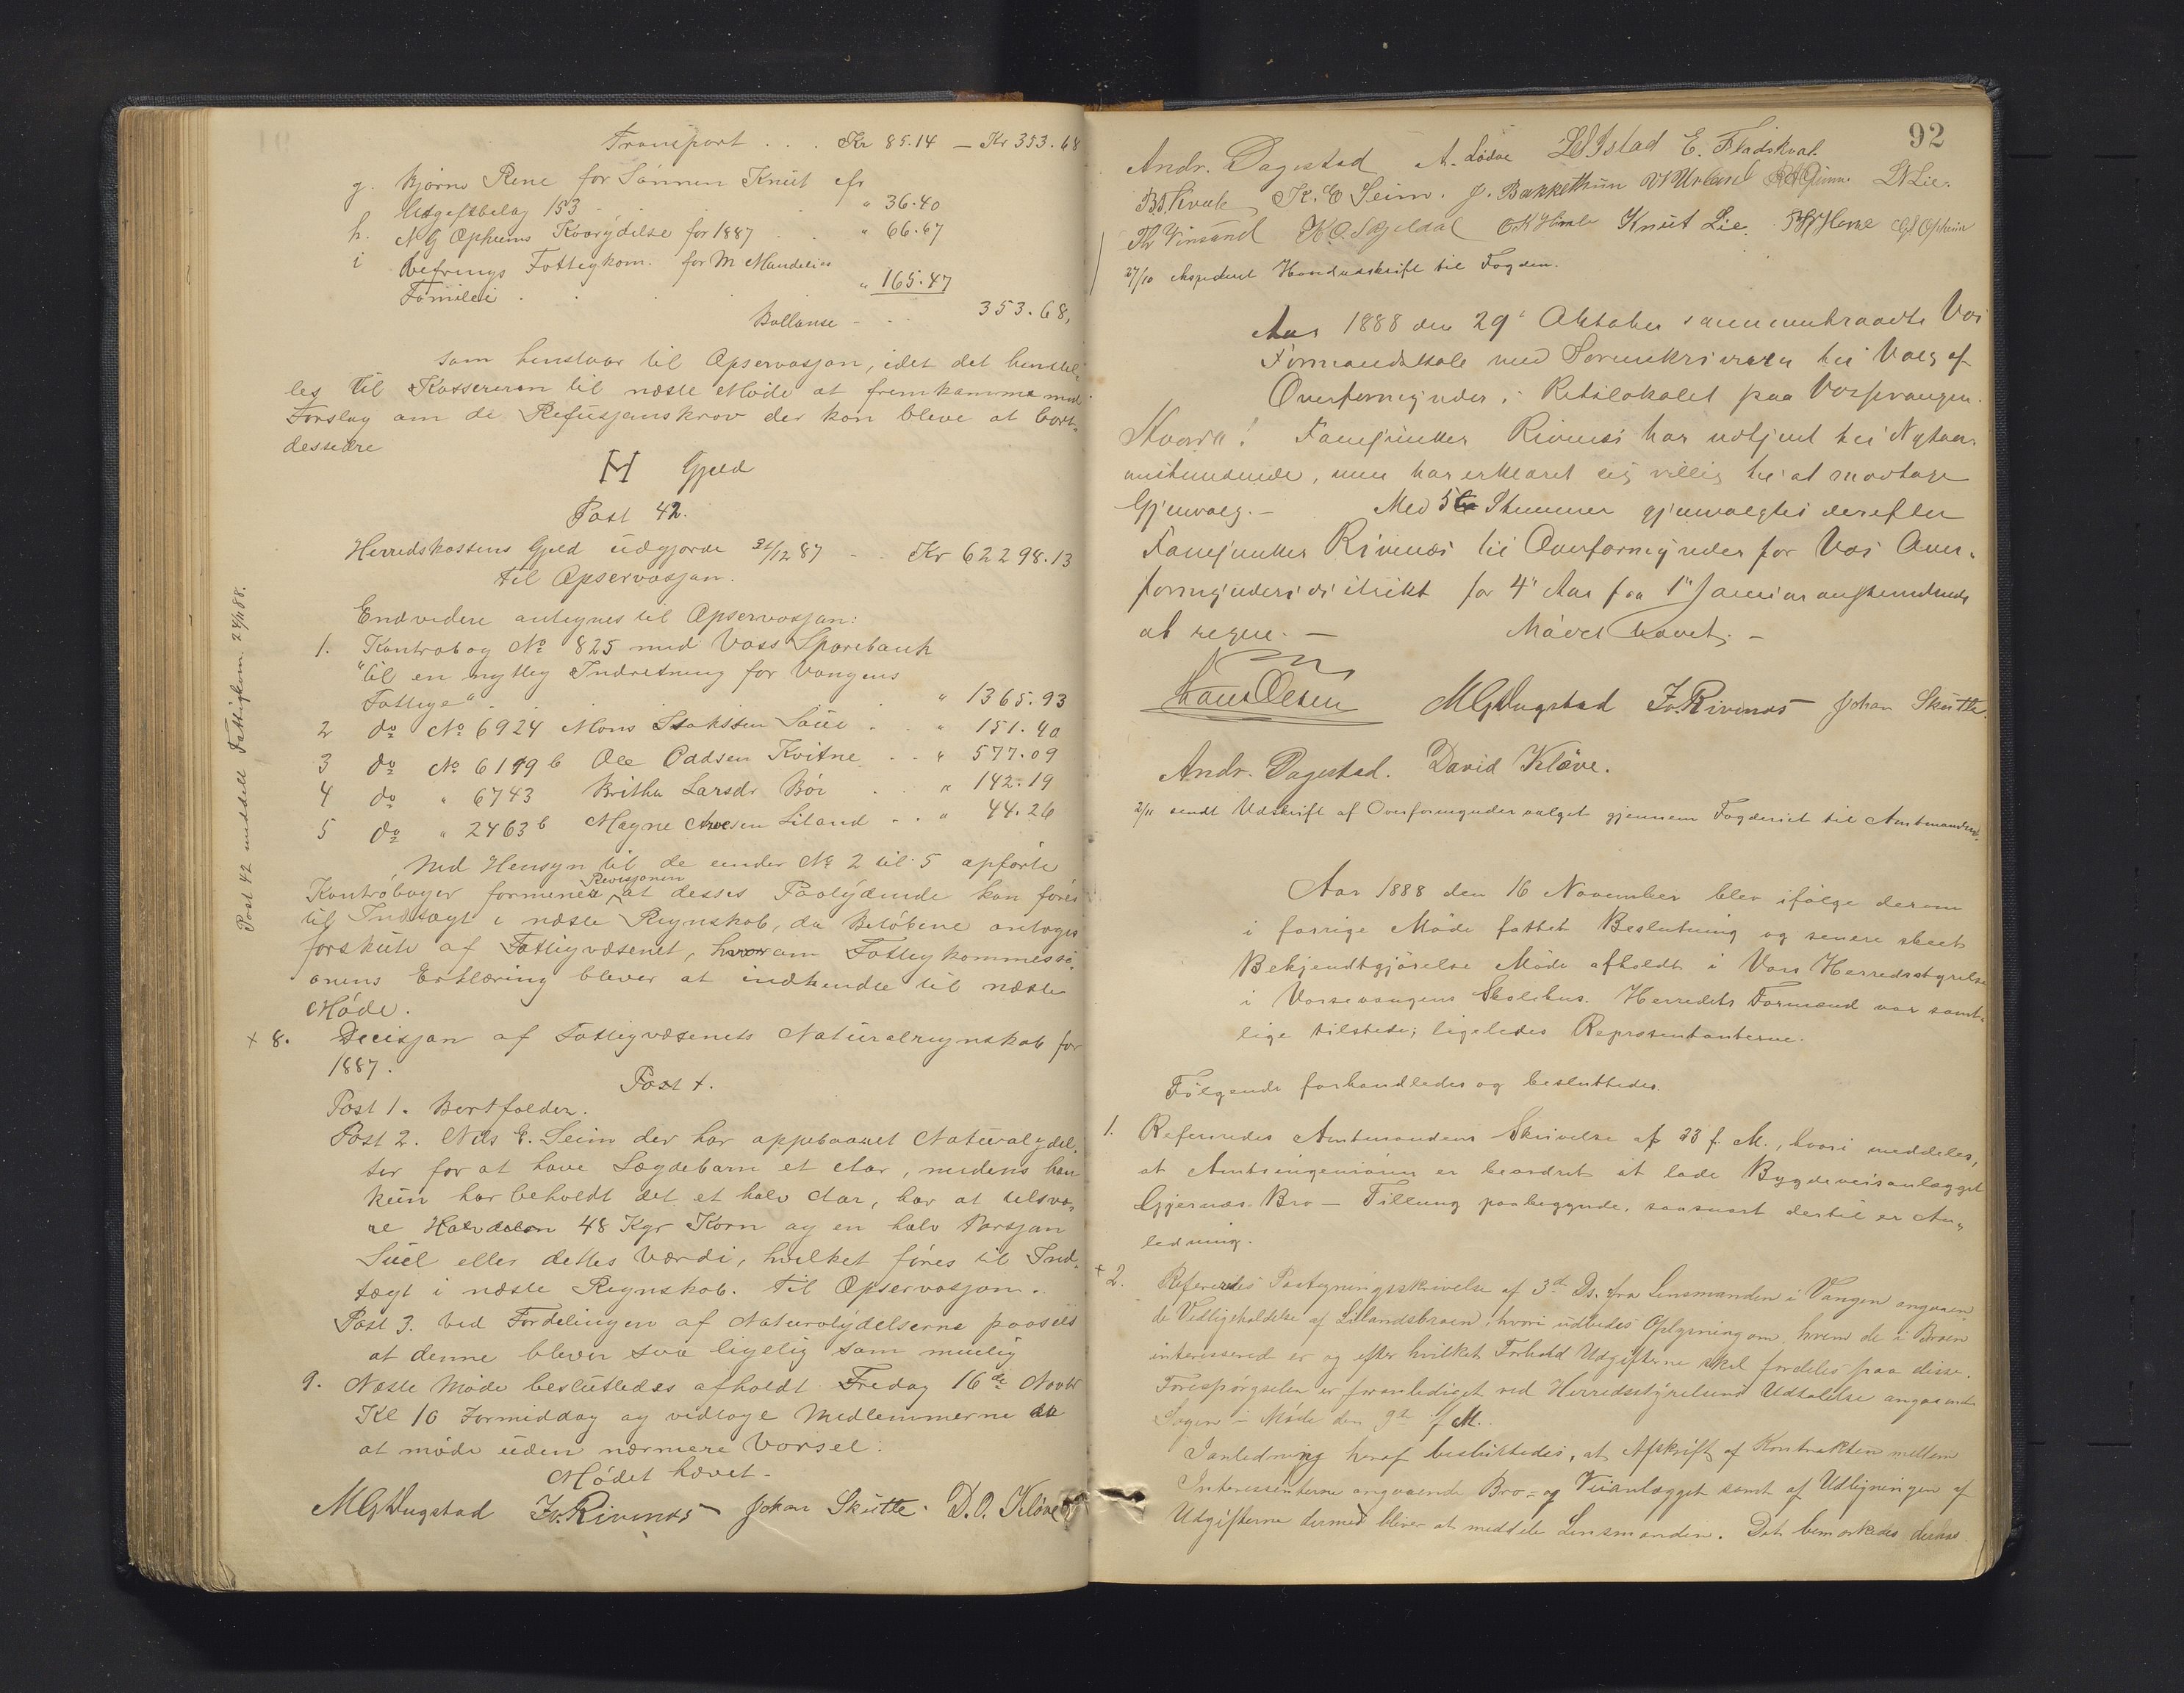 Transport . . . Kr 85.14 — Kr 353.68
g. Bjørne Rene for Sønnen Knut efr
Utgiftsbilag 153 . . . " 36.40
h. N G Ophems Kvarydelse for 1887 . . " 66.67
i Befrings Fattigkom. for M Mandelies
Familei . . . . " 165.47
Ballanse - - - 353.68,
som henstaar til Opservasjon, idet det henstil-
les til Kassereren til næste Møde at fremkomme med
Forslag om de Refusjonskrav der kan blive at bort-
desidere
H Gjeld
Post 42.
Herredskassens Gjeld udgjorde 31/12 87 - . . Kr 62298.13
til Opservasjon.
Endvidere antegnes til Opservasjon:
1. Kontrabog No 825 med Voss Sparebank
"til en nyttig Indretning for Vangens
Fattige" . . . " 1365.93
2 do No 6924 Mons Isaksen Saue . . " 151.40
3 do No 6179 b Ole Oddsen Kvitne . . " 577.09
4 do " 6743 Britha Larsdr Bør . . " 142.19
5 do " 2463 b Magne Arvesen Liland . . " 44.26
Med Hensyn til de under No 2 til 5 opførte
Kontrabøger formener Revisjonen at desses Paalydende kan føres
til Indtægt i næste Regnskab, da Beløbene antages
forskutt af Fattigvæsenet, hvorom Fattigkommissi-
onens Erklæring bliver at indhendte til næste
Møde.
Post 42 meddelt Fattigkom. 24/11 88.
+ 8. Decisjon af Fattigvæsenets Naturalregnskab for
1887.
Post +.
Post 1. Bortfalder.
Post 2. Nils E. Seim der har oppebaaret Naturalydel-
ser for at have Lægdebarn et Aar, medens han
kun har beholdt det et halv Aar, har at tilsva-
re Halvdelen 48 Kgr Korn og en halv Porsjon
Suel eller dettes Værdi, hvilket føres til Ind-
tægt i næste Regnskab. Til Opservasjon.
Post 3. Ved Fordelingen af Naturalydelserne paasees
at denne bliver saa ligelig som muelig
9. Næste Møde besluttedes afholdt Fredag 16de Novbr
Kl 10 Formiddag og vedtoge Medlemmerne da
at møde uden nærmere Varsel.
Mødet hævet.
MGDugstad Iv. Rivenæs Johan Skutle. D.O. Kløve
92
Andr. Dagestad A. Lødve LSIstad E. Fladekval.
B.S. Kvale K. E Seim. J. Bakkethun LNLie.
Th Vinsand K O Skjeldal OKHimle Knut Lie. Ophein
27/10 ekspederet Hovedudskrift til Fogden.
Aar 1888 den 29de Oktober sammentraadte Vos
Formandskab med Sorenskriveren til Valg af
Overformynder i Retslokalet paa Vossevangen.
Hvorda! Fanejunker Rivenæs har udtjent til Nytaar
anstundende, men har erklæret sig villig til at modtage
Gjenvalg. — Med 5 Stemmer gjenvalgtes derefter
Fanejunker Rivenæs til Overformynder for Vos Over-
formynderidistrikt for 4 Aar fra 1ste Januar anstundende
at regne. — Mødet hævet. —
Hans Olsen MGDugstad Iv. Rivenæs Johan Skutle.
Andr. Dagestad. David Kløve.
2/11 sendt Udskrift af Overformyndervalget gjennem Fogderiet til Amtmanden.
Aar 1888 den 16 November blev ifølge derom
i forrige Møde fattet Beslutning og senere skeet
Bekjendtgjørelse Møde afholdt i Vors Herredsstyrelse
i Vossevangens Skolehus. Herredets Formænd var samt-
lige tilstede; ligeledes Repræsentanterne.
Følgende forhandledes og besluttedes.
1. Refereredes Amtmandens Skrivelse af 23 f. M., hvori meddeles,
at Amtsingeniøren er beordret at lade Bygdeveisanlægget
Gjernæs Bro — Tillung paabegynde, saasnart dertil er An-
ledning.
+ 2. Refereredes Paategningsskrivelse af 3de Ds. fra Lensmanden i Vangen angaaen-
de Vedligeholdelse af Lilandsbroen, hvori udbedes Oplysning om, hvem de i Broen
interesseret er og efter hvilket Forhold Udgifterne skal fordeles paa disse.
Forespørgselen er foranlediget ved Herredsstyrelsens Udtalelse angaaende
Sagen i Møde den 9de f M.
I anledning heraf besluttedes, at Afskrift af Kontrakten mellem
Interessenterne angaaende Bro- og Veianlægget samt af Udligningen af
Udgifterne dermed bliver at meddele Lensmanden. Det bemærkedes derhos